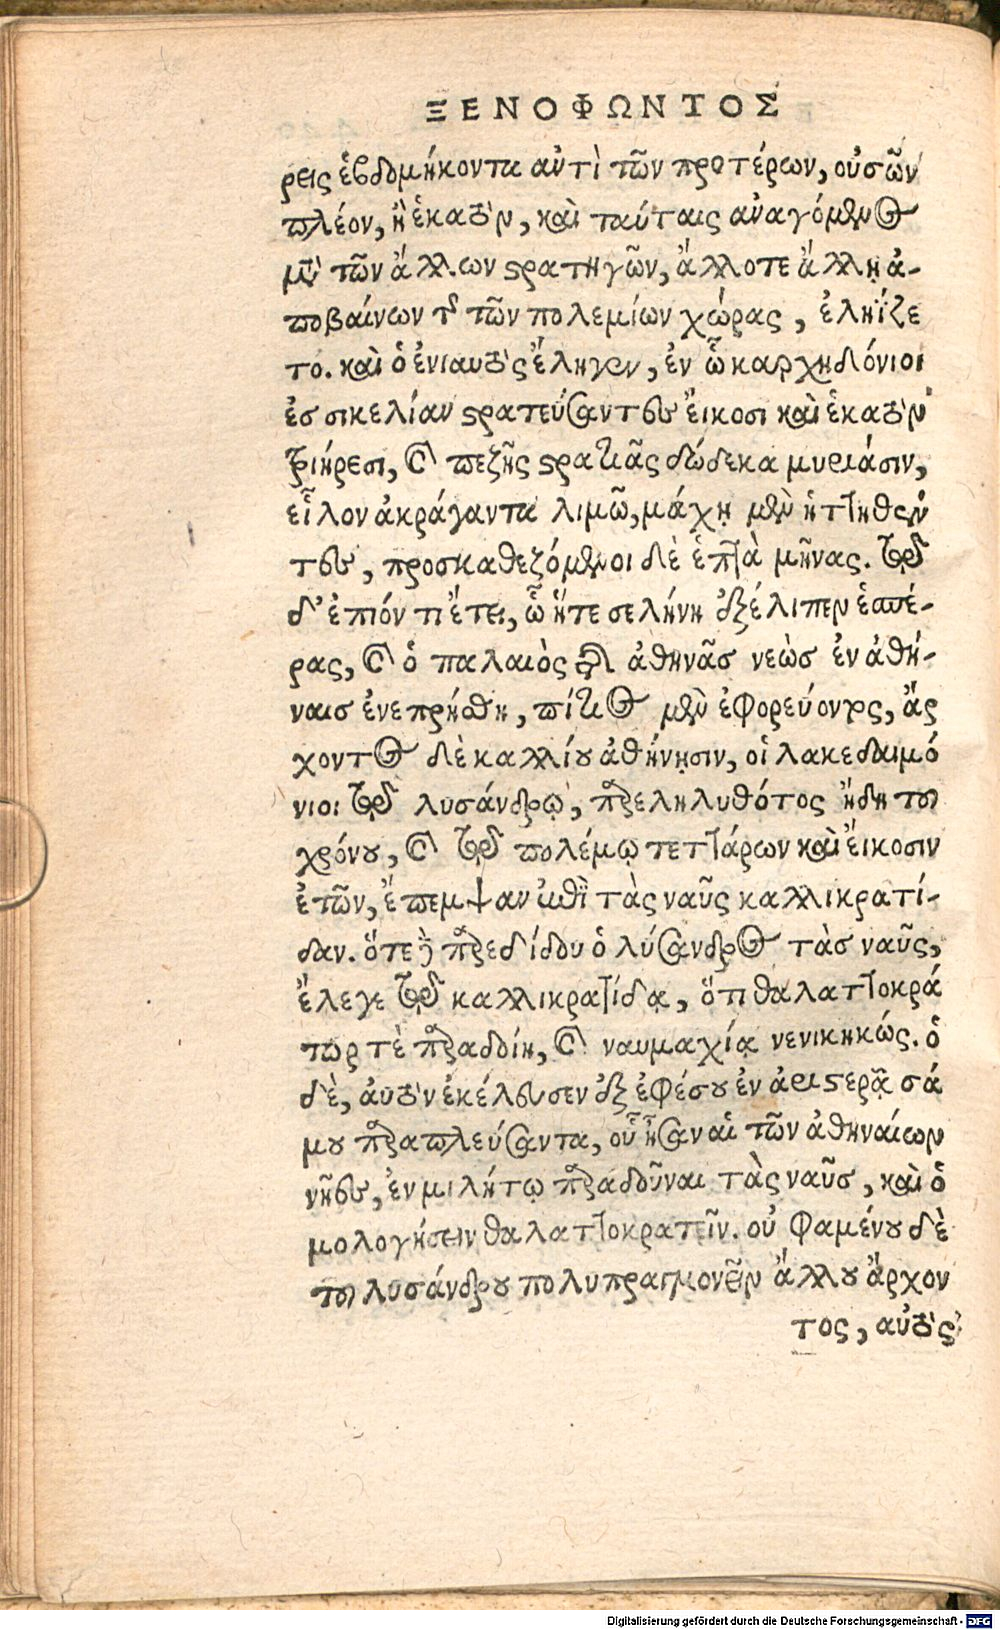 ΞΕΝΟΦΩΝΤΟΣ
ρεις ἑβδομήκοντα αὐτὶ τῶν προτέρων, οὐσῶν
πλέον, ἢ ἑκατὸν, καὶ ταύταις ἀναγόμενος
μετὰ τῶν ἄλλων στρατηγῶν, ἄλλοτε ἄλλῃ ἀ-
ποβαίνων τῆς τῶν πολεμίων χώρας, ἐληΐζε
το. καὶ ὁ ἐνιαυτὸς ἔληγεν, ἐν ᾧ καρχηδόνιοι
ἐσ σικελίαν στρατεύσαντες εἴκοσι καὶ ἑκατὸν
τριήρεσι, καὶ πεζῆς στρατιᾶς δώδεκα μυριάσιν,
εἷλον ἀκράγαντα λιμῶ, μάχῃ μὲν ἡττηθέν
τες, προσκαθεζόμενοι δὲ ἑπτὰ μῆνας. τῷ
δ' ἐπιόντι ἔτει, ᾧ ἥτε σελήνη ἐξέλιπεν ἑσπέ-
ρας, καὶ ὁ παλαιὸς τῆς ἀθηνᾶσ νεὼσ ἐν ἀθή-
ναισ ἐνεπρήσθη, πίτιος μὲν ἐφορεύοντος, ἄρ
χοντος δὲ καλλίου ἀθήνησιν, οἱ λακεδαιμό
νιοι τῷ λυσάνδρῳ, παρεληλυθότος ἤδη του
χρόνου, καὶ τῷ πολέμῳ τεττάρων καὶ εἴκοσιν
ἐτῶν, ἔπεμψαν ἐπὶ τὰς ναῦς καλλικρατί-
δαν. ὅτε δὲ παρεδίδου ὁ λύσανδρος τὰσ ναῦς,
ἔλεγε τῷ καλλικρατίδᾳ, ὅτι θαλαττοκρά
τωρ τὲ παραδοίη, καὶ ναυμαχίᾳ νενικηκώς. ὁ
δὲ, αὐτὸν ἐκέλευσεν ἐξ ἐφέσου ἐν ἀριστερᾷ σά
μου παραπλεύσαντα, οὗ ἦσαν αἱ τῶν ἀθηναίων
νῆες, ἐν μιλήτῳ παραδοῦναι τὰς ναῦσ, καὶ ὁ
μολογήσειν θαλαττοκρατεῖν. οὐ φαμένου δὲ
του λυσάνδρου πολυπραγμονεῖν ἄλλου ἄρχον
τος, αὐτὸς
Digitalisierung gefördert durch die Deutsche Forschungsgemeinschaft - DFG